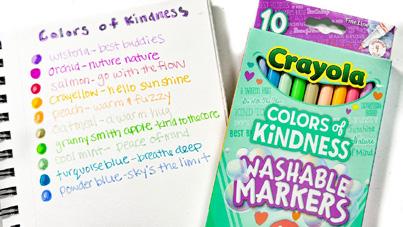 Colors of Kindness
wisteria-best buddies
orchid-nuture nature
salmon-go with the flow
crayellow-hello sunshine
peach-warm & fuzzy
oatmeal-a warm hug
granny smith apple-kind to the core
cool mint-peace of mind
turquoise blue-breathe deep
powder blue-sky's the limit
10
Fine Line
Crayola
COLORS of
KINDNESS
WASHABLE
MARKERS